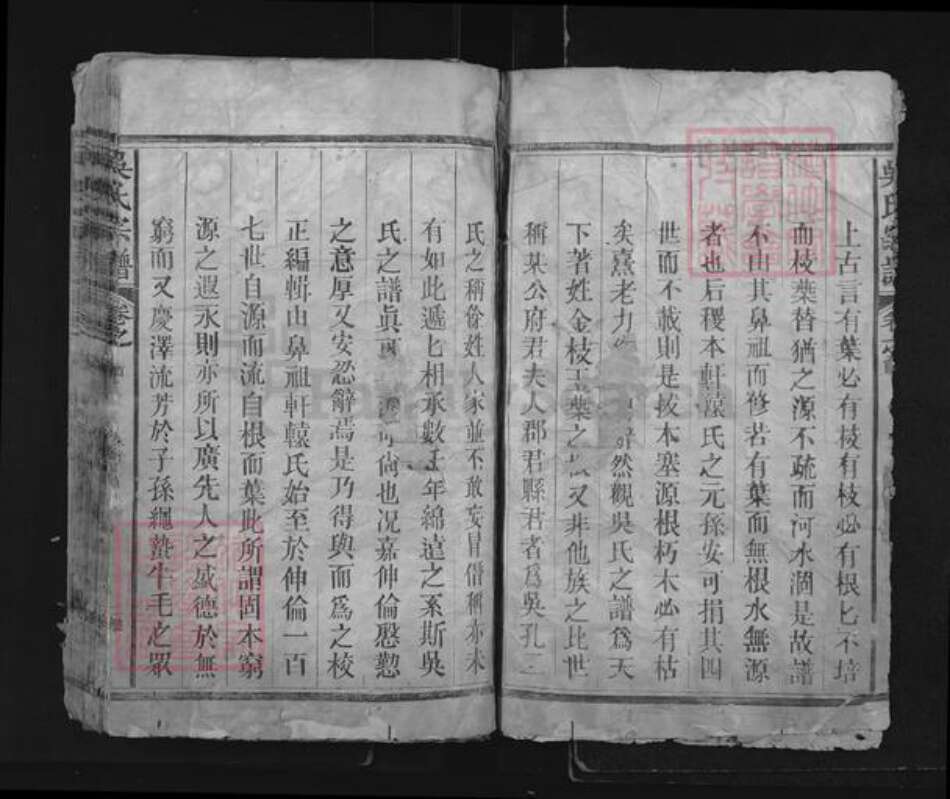 吳氏宗譜
上古言有葉必有枝有枝必有根匕不培
而枝葉替猶之源不疏而河水涸是故譜
不由其鼻祖而修若有葉而無根水無源
者也后稷本軒轅氏之元孫安可捐其四
世而不載則是拔本塞源根朽木必有枯
矣熹老力 然觀吳氏之譜爲天
下著姓金枝玉葉之 又非他族之比世
稱某公府君夫人郡君縣君者爲吳孔二
氏之稱餘姓人家並不敢妄冒借稱亦未
有如此遞匕相承數千年綿遠之系斯吳
氏之譜眞可 可尙也况嘉伸倫慇懃
之意厚又安忍辭焉是乃得與而爲之校
正編輯由鼻祖軒轅氏始至於伸倫一百
七世自源而流自根而葉此所謂固本窮
源之遐永則亦所以廣先人之盛德於無
窮而又慶澤流芳於子孫繩蟄牛毛之眾
吳氏宗譜 卷之